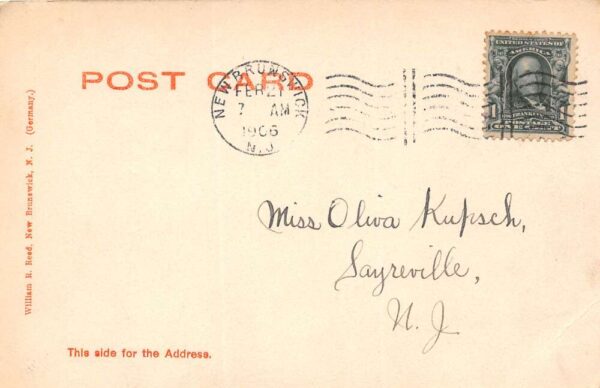 POST CARD
NEW BRUNSWICK
FEB 21
7 AM
1906
N.J.
UNITED STATES OF
1 1
POSTAGE
ONE CENT
Miss Oliva Kupsch,
Sayreville,
N. J.
This side for the Address.
William R. Reed, New Brunswick, N. J. (Germany.)